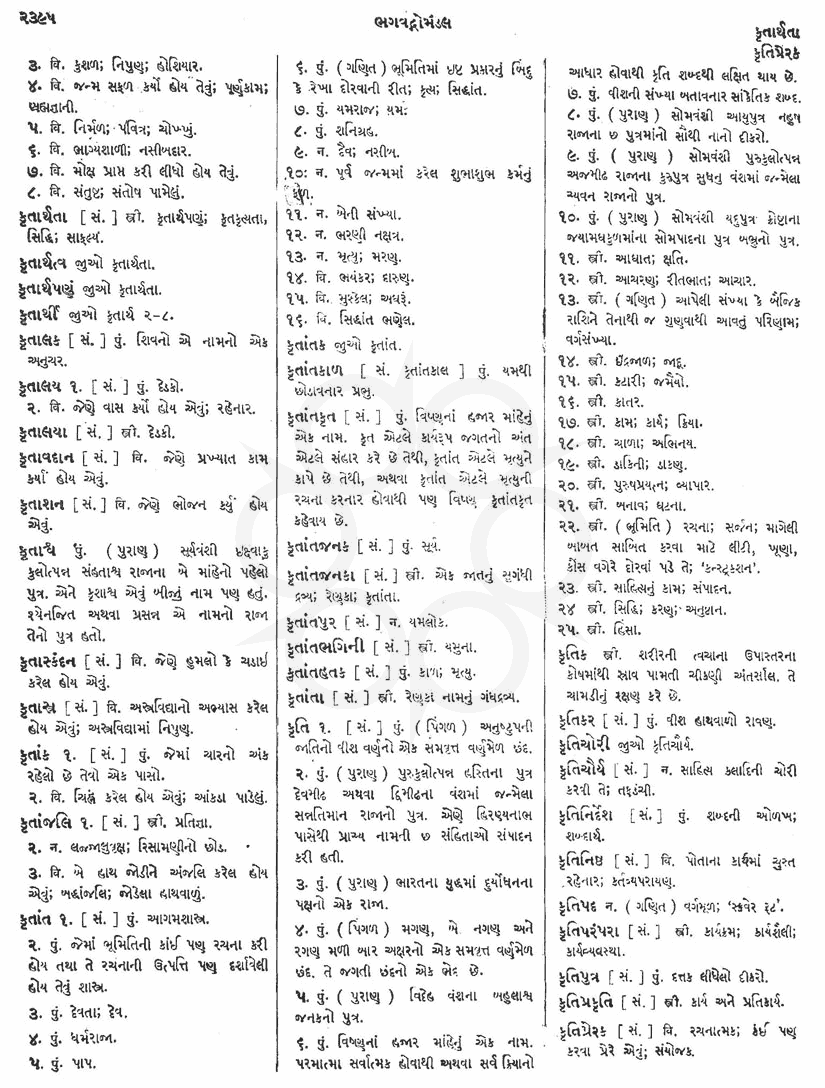 ૨૩૯૫
ભગવદ્ગોમંડલ
કૃતાર્થતા
કૃતિપ્રેરક
૩. વિ. કુશળ; નિપુણ; હોશિયાર.
૪. વિ. જન્મ સફળ કર્યો હોય તેવું; પૂર્ણકામ;
બ્રહ્મજ્ઞાની.
૫. વિ. નિર્મળ; પવિત્ર; ચોખ્ખું.
૬. વિ. ભાગ્યશાળી; નસીબદાર.
૭. વિ. મોક્ષ પ્રાપ્ત કરી લીધો હોય તેવું.
૮. વિ. સંતુષ્ટ; સંતોષ પામેલું.
કૃતાર્થતા [ સં. ] સ્ત્રી. કૃતાર્થપણું; કૃતકૃત્યતા,
સિદ્ધિ; સાફલ્ય.
કૃતાર્થત્વ જુઓ કૃતાર્થતા.
કૃતાર્થપણું જુઓ કૃતાર્થતા.
કૃતાર્થી જુઓ કૃતાર્થ ૨-૮.
કૃતાલક [ સં. ] પું. શિવનો એ નામનો એક
અનુચર.
કૃતાલય ૧. [ સં. ] પું. દેડકો.
૨. વિ. જેણે વાસ કર્યો હોય એવું; રહેનાર.
કૃતાલયા [ સં. ] સ્ત્રી. દેડકી.
કૃતાવદાન [ સં. ] વિ. જેણે પ્રખ્યાત કામ
કર્યાં હોય એવું.
કૃતાશન [ સં. ] વિ. જેણે ભોજન કર્યું હોય
એવું.
કૃતાશ્વ પું. ( પુરાણ ) સૂર્યવંશી ઇક્ષ્વાકુ
કુલોત્પન્ન સંહતાશ્વ રાજાના બે માંહેનો પહેલો
પુત્ર. એને કૃશાશ્વ એવું બીજું નામ પણ હતું.
શ્યેનજિત અથવા પ્રસન્ન એ નામનો રાજા
તેનો પુત્ર હતો.
કૃતાસ્કંદન [ સં. ] વિ. જેણે હુમલો કે ચડાઈ
કરેલ હોય એવું.
કૃતાસ્ત્ર [ સં. ] વિ. અસ્ત્રવિદ્યાનો અભ્યાસ કરેલ
હોય એવું; અસ્ત્રવિદ્યામાં નિપુણ.
કૃતાંક ૧. [ સં. ] પું. જેમાં ચારનો અંક
રહેલો છે તેવો એક પાસો.
૨. વિ. ચિહ્ન કરેલ હોય એવું; આંકડા પાડેલું.
કૃતાંજલિ ૧. [ સં. ] સ્ત્રી. પ્રતિજ્ઞા.
૨. ન. લજ્જાવૃક્ષ; રિસામણીનો છોડ.
૩. વિ. બે હાથ જોડીને અંજલિ કરેલ હોય
એવું; બદ્ધાંજલિ; જોડેલા હાથવાળું.
કૃતાંત ૧. [ સં. ] પું. આગમશાસ્ત્ર.
૨. પું. જેમાં ભૂમિતિની કાંઈ પણ રચના કરી
હોય તથા તે રચનાની ઉત્પત્તિ પણ દર્શાવેલી
હોય તેવું શાસ્ત્ર.
૩. પું. દેવતા; દેવ.
૪. પું. ધર્મરાજા.
૫. પું. પાપ.
૬. પું. ( ગણિત ) ભૂમિતિમાં ઇષ્ટ પ્રકારનું બિંદુ
કે રેખા દોરવાની રીત; કૃત્ય; સિદ્ધાંત.
૭. પું. યમરાજ; યમ.
૮. પું. શનિગ્રહ.
૯. ન. દૈવ; નસીબ.
૧૦. ન. પૂર્વ જન્મમાં કરેલ શુભાશુભ કર્મનું
ફળ.
૧૧. ન. બેની સંખ્યા.
૧૨. ન. ભરણી નક્ષત્ર.
૧૩. ન. મૃત્યુ; મરણ.
૧૪. વિ. ભયંકર; દારુણ.
૧૫. વિ. મુશ્કેલ; અઘરૂં.
૧૬. વિ. સિદ્ધાંત ભણેલ.
કૃતાંતક જુઓ કૃતાંત.
કૃતાંતકાળ [ સં. કૃતાંતકાલ ] પું. યમથી
છોડાવનાર પ્રભુ.
કૃતાંતકૃત [ સં. ] પું. વિષ્ણુનાં હજાર માંહેનું
એક નામ. કૃત એટલે કાર્યરૂપ જગતનો અંત
એટલે સંહાર કરે છે તેથી, કૃતાંત એટલે મૃત્યુને
કાપે છે તેથી, અથવા કૃતાંત એટલે મૃત્યુની
રચના કરનાર હોવાથી પણ વિષ્ણુ કૃતાંતકૃત
કહેવાય છે.
કૃતાંતજનક [ સં. ] પું. સૂર્ય.
કૃતાંતજનકા [ સં. ] સ્ત્રી. એક જાતનું સુગંધી
દ્રવ્ય; રેણુકા; કૃતાંતા.
કૃતાંતપુર [ સં. ] ન. યમલોક.
કૃતાંતભગિની [ સં. ] સ્ત્રી. યમુના.
કૃતાંતહુતક [ સં. ] પું. કાળ; મૃત્યુ.
કૃતાંતા [ સં. ] સ્ત્રી. રેણુકા નામનું ગંધદ્રવ્ય.
કૃતિ ૧. [ સં. ] પું. ( પિંગળ ) અનુષ્ટુપની
જાતિનો વીશ વર્ણનો એક સમવૃત્ત વર્ણમેળ છંદ.
૨. પું. ( પુરાણ ) પુરુકુલોત્પન્ન હસ્તિના પુત્ર
દેવમીઢ અથવા દ્વિમીઢના વંશમાં જન્મેલા
સન્નતિમાન રાજાનો પુત્ર. એણે હિરણ્યનાભ
પાસેથી પ્રાચ્ય નામની છ સંહિતાઓ સંપાદન
કરી હતી.
૩. પું. ( પુરાણ ) ભારતના યુદ્ધમાં દુર્યોધનના
પક્ષનો એક રાજા.
૪. પું. ( પિંગળ ) મગણ, બે નગણ અને
રગણ મળી બાર અક્ષરનો એક સમવૃત્ત વર્ણમેળ
છંદ. તે જગતી છંદનો એક ભેદ છે.
૫. પું. ( પુરાણ ) વિદેહ વંશના બહુલાશ્વ
જનકનો પુત્ર.
૬. પું. વિષ્ણુનાં હજાર માંહેનું એક નામ.
પરમાત્મા સર્વાત્મક હોવાથી અથવા સર્વ ક્રિયાનો
આધાર હોવાથી કૃતિ શબ્દથી લક્ષિત થાય છે.
૭. પું. વીશની સંખ્યા બતાવનાર સાંકેતિક શબ્દ.
૮. પું. ( પુરાણ ) સોમવંશી આયુપુત્ર નહુષ
રાજાના છ પુત્રમાંનો સૌથી નાનો દીકરો.
૯. પું. ( પુરાણ ) સોમવંશી પુરુકુલોત્પન્ન
અજમીઢ રાજાના કુરુપુત્ર સુધનુ વંશમાં જન્મેલા
ચ્યવન રાજાનો પુત્ર.
૧૦. પું. ( પુરાણ ) સોમવંશી યદુપુત્ર ક્રોષ્ટાના
જ્યામઘકુળમાંના સોમપાદના પુત્ર બભ્રુનો પુત્ર.
૧૧. સ્ત્રી. આઘાત; ક્ષતિ.
૧૨. સ્ત્રી. આચરણ; રીતભાત; આચાર.
૧૩. સ્ત્રી. ( ગણિત ) આપેલી સંખ્યા કે બૈજિક
રાશિને તેનાથી જ ગુણવાથી આવતું પરિણામ;
વર્ગસંખ્યા.
૧૪. સ્ત્રી. ઇંદ્રજાળ; જાદૂ.
૧૫. સ્ત્રી. કટારી; જમૈયો.
૧૬. સ્ત્રી. કાતર.
૧૭. સ્ત્રી. કામ; કાર્ય; ક્રિયા.
૧૮. સ્ત્રી. ચાળા; અભિનય.
૧૯. સ્ત્રી. ડાકિની; ડાકણ.
૨૦. સ્ત્રી. પુરુષપ્રયત્ન; વ્યાપાર.
૨૧. સ્ત્રી. બનાવ; ઘટના.
૨૨. સ્ત્રી. ( ભૂમિતિ ) રચના; સર્જન; માગેલી
બાબત સાબિત કરવા માટે લીટી, ખૂણા,
કૌંસ વગેરે દોરવાં પડે તે; ‘કન્સ્ટ્રકશન’.
૨૩. સ્ત્રી. સાહિત્યનું કામ; સંપાદન.
૨૪ સ્ત્રી. સિદ્ધિ; કરણ; અનુષ્ઠાન.
૨૫. સ્ત્રી. હિંસા.
કૃતિક સ્ત્રી. શરીરની ત્વચાના ઉપાસ્તરના
કોષમાંથી સ્રાવ પામતી ચીકણી અંતર્સાલ. તે
ચામડીનું રક્ષણ કરે છે.
કૃતિકર [ સં. ] પું. વીશ હાથવાળો રાવણ.
કૃતિચોરી જુઓ કૃતિચૌર્ય.
કૃતિચૌર્ય [ સં. ] ન. સાહિત્ય કલાદિની ચોરી
કરવી તે; તફડંચી.
કૃતિનિર્દેશ [ સં. ] પું. શબ્દની ઓળખ;
શબ્દાર્થ.
કૃતિનિષ્ઠ [ સં. ] વિ. પોતાના કાર્યમાં ચુસ્ત
રહેનાર; કર્તવ્યપરાયણ.
કૃતિપદ ન. ( ગણિત ) વર્ગમૂળ; ‘સ્ક્વેર રૂટ’.
કૃતિપરંપરા [ સં. ] સ્ત્રી. કાર્યક્રમ; કાર્યશૈલી;
કાર્યવ્યવસ્થા.
કૃતિપુત્ર [ સં. ] પું. દત્તક લીધેલો દીકરો.
કૃતિપ્રકૃતિ [ સં. ] સ્ત્રી. કાર્ય અને પ્રતિકાર્ય.
કૃતિપ્રેરક [ સં. ] વિ. રચનાત્મક; કંઈ પણ
કરવા પ્રેરે એવું; સંયોજક.